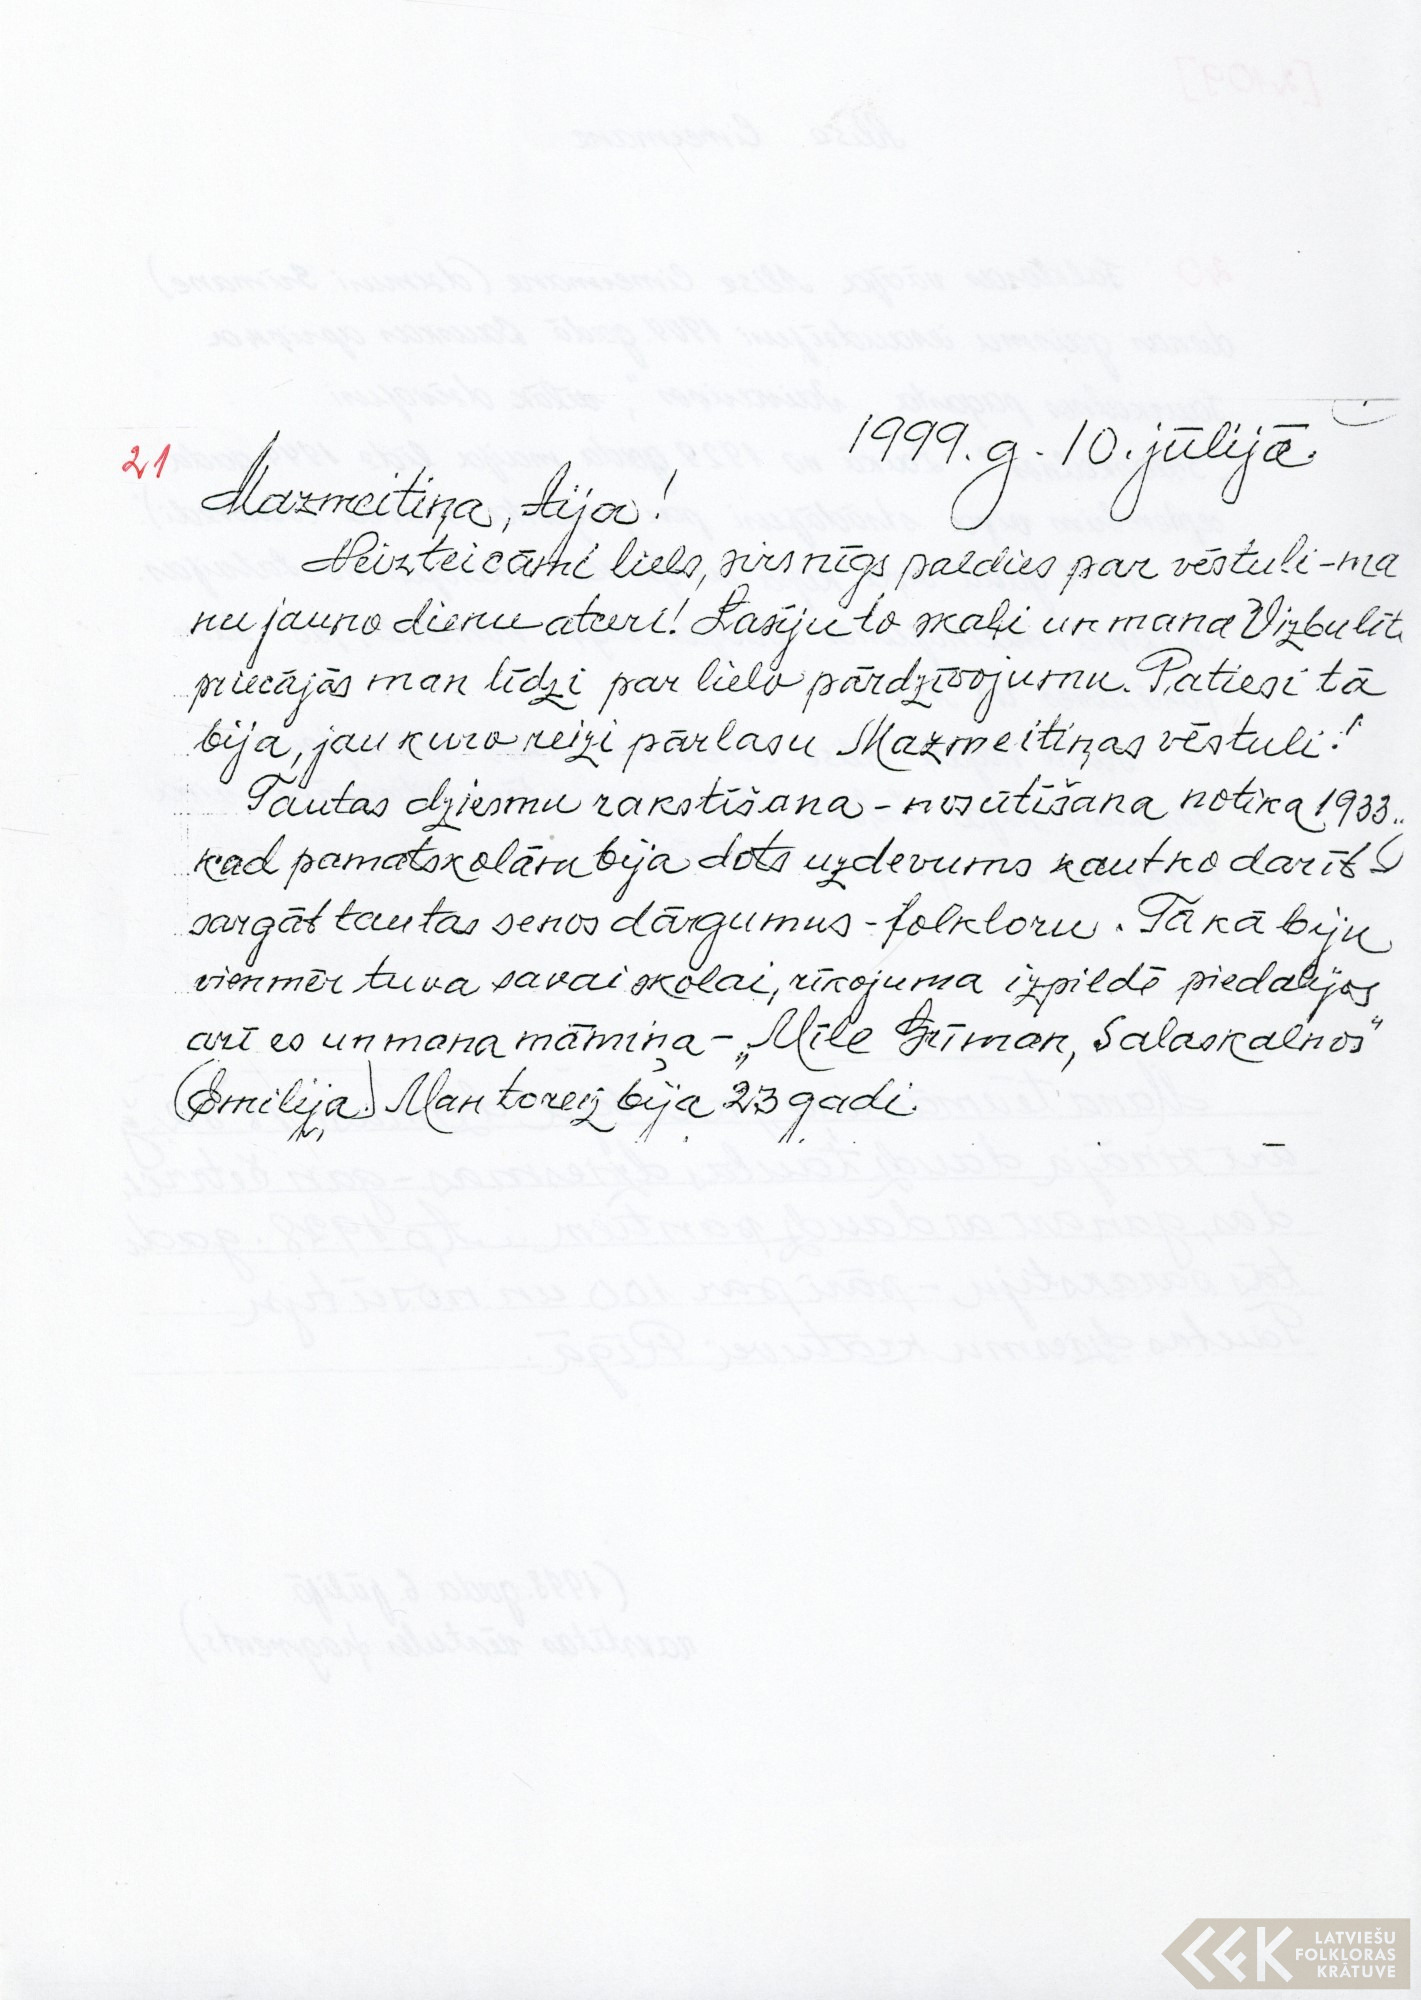 1999. g. 10. jūlijā.
21
Mazmeitiņa, Aija!
Neizteicāmi liels, sirsnīgs paldies par vēstuli-ma
nu jauno dienu aturi! Lasīju to skaļi un mana Vizbulīt
priecājās man līdzi par lielo pārdzīvojumu. Patiesi tā
bija, jau kuro reizi pārlasu Mazmeitiņas vēstuli!
Tautas dziesmu rakstīšana - nosūtīšana notika 1933..
kad pamatskolām bija dots uzdevums kautko darīt
sargāt tautas senos dārgumus - folkloru. Tā kā biju
vienmēr tuva savai skolai, rīkojuma izpildē piedalījos
arī es un mana māmiņa - „Mīle Grīman, Salaskalnos"
(Emilija) Man toreiz bija 23 gadi.
LATVIEŠU
FOLKLORAS
KRĀTUVE